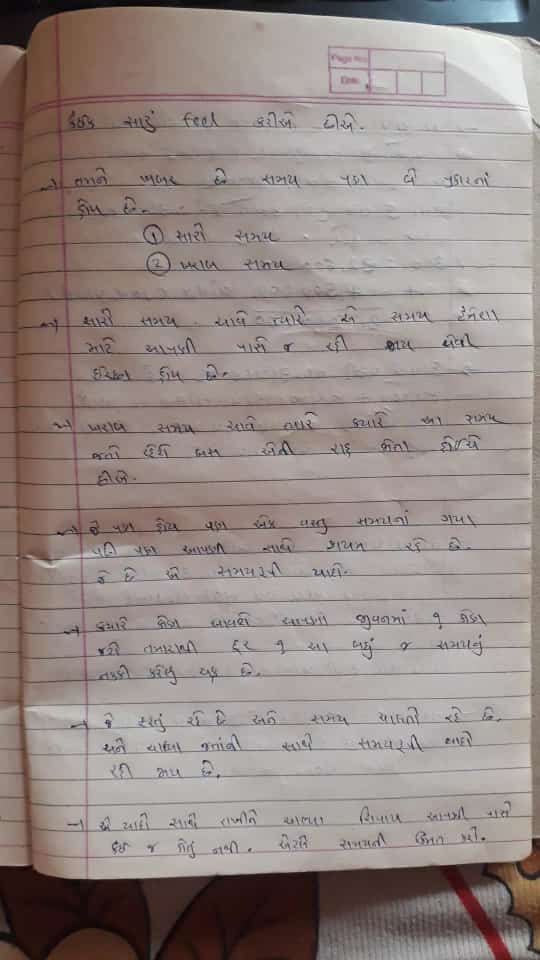 Page No.
Date
કંઈક સારું feel કરીએ છીએ.
→ તમને ખબર છે સમય પણ બે પ્રકારનાં
હોય છે.
① સારો સમય
② ખરાબ સમય
→ સારો સમય આવે ત્યારે એ સમય હંમેશા
માટે આપણી પાસે જ રહી જાય એવી
ઈચ્છા હોય છે.
→ ખરાબ સમય આવે ત્યારે ક્યારે આ સમય
જતો રહેશે બસ એની રાહ જોતા હોઈએ
છીએ.
→ જે પણ હોય પણ એક વસ્તુ સમયનાં ગયા
પછી પણ આપણી સાથે કાયમ રહે છે.
જે છે એ સમયરૂપી યાદો.
→ ક્યારે કોણ આવશે આપણા જીવનમાં ? કોણ
જશે તમારાથી દૂર ? આ બધું જ સમયનું
નક્કી કરેલું ચક્ર છે.
→ જે ફરતું રહે છે અને સમય ચાલતો રહે છે.
અને ચાલ્યા જતાંની સાથે સમયરૂપી યાદો
રહી જાય છે.
→ એ યાદો સાથે રાખીને ચાલ્યા સિવાય આપણી પાસે
કંઈ જ હોતું નથી. એટલે સમયની કિંમત કરો.